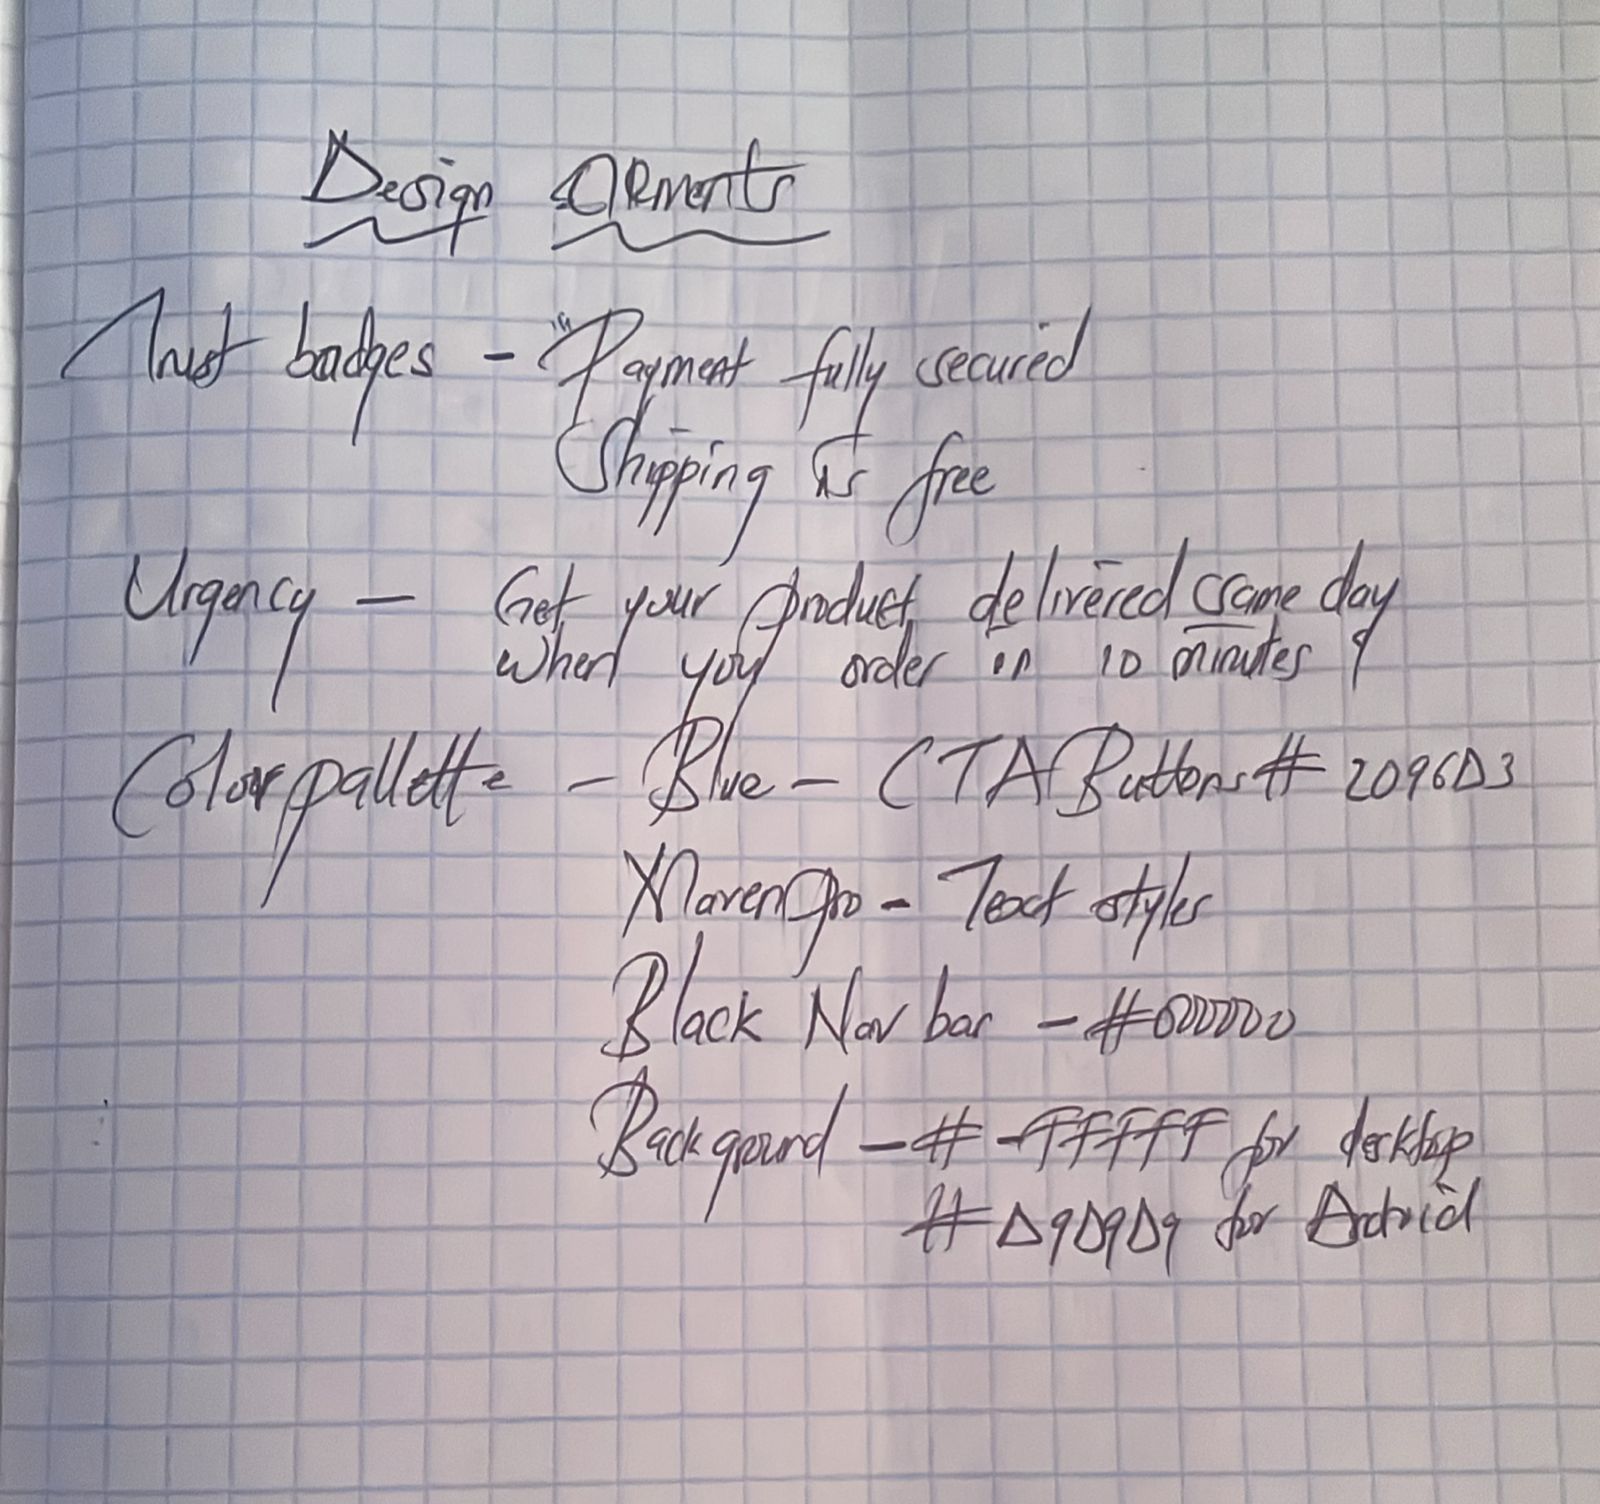 Design Elements
Trust badges - "Payment fully secured
Shipping is free
Urgency - Get your product delivered same day
when you order in 10 minutes
Color pallette - Blue - CTA Buttons # 2096D3
Maven Pro - Text styles
Black Nav bar - #000000
Background - # FFFFFF for desktop
# D9D9D9 for Android